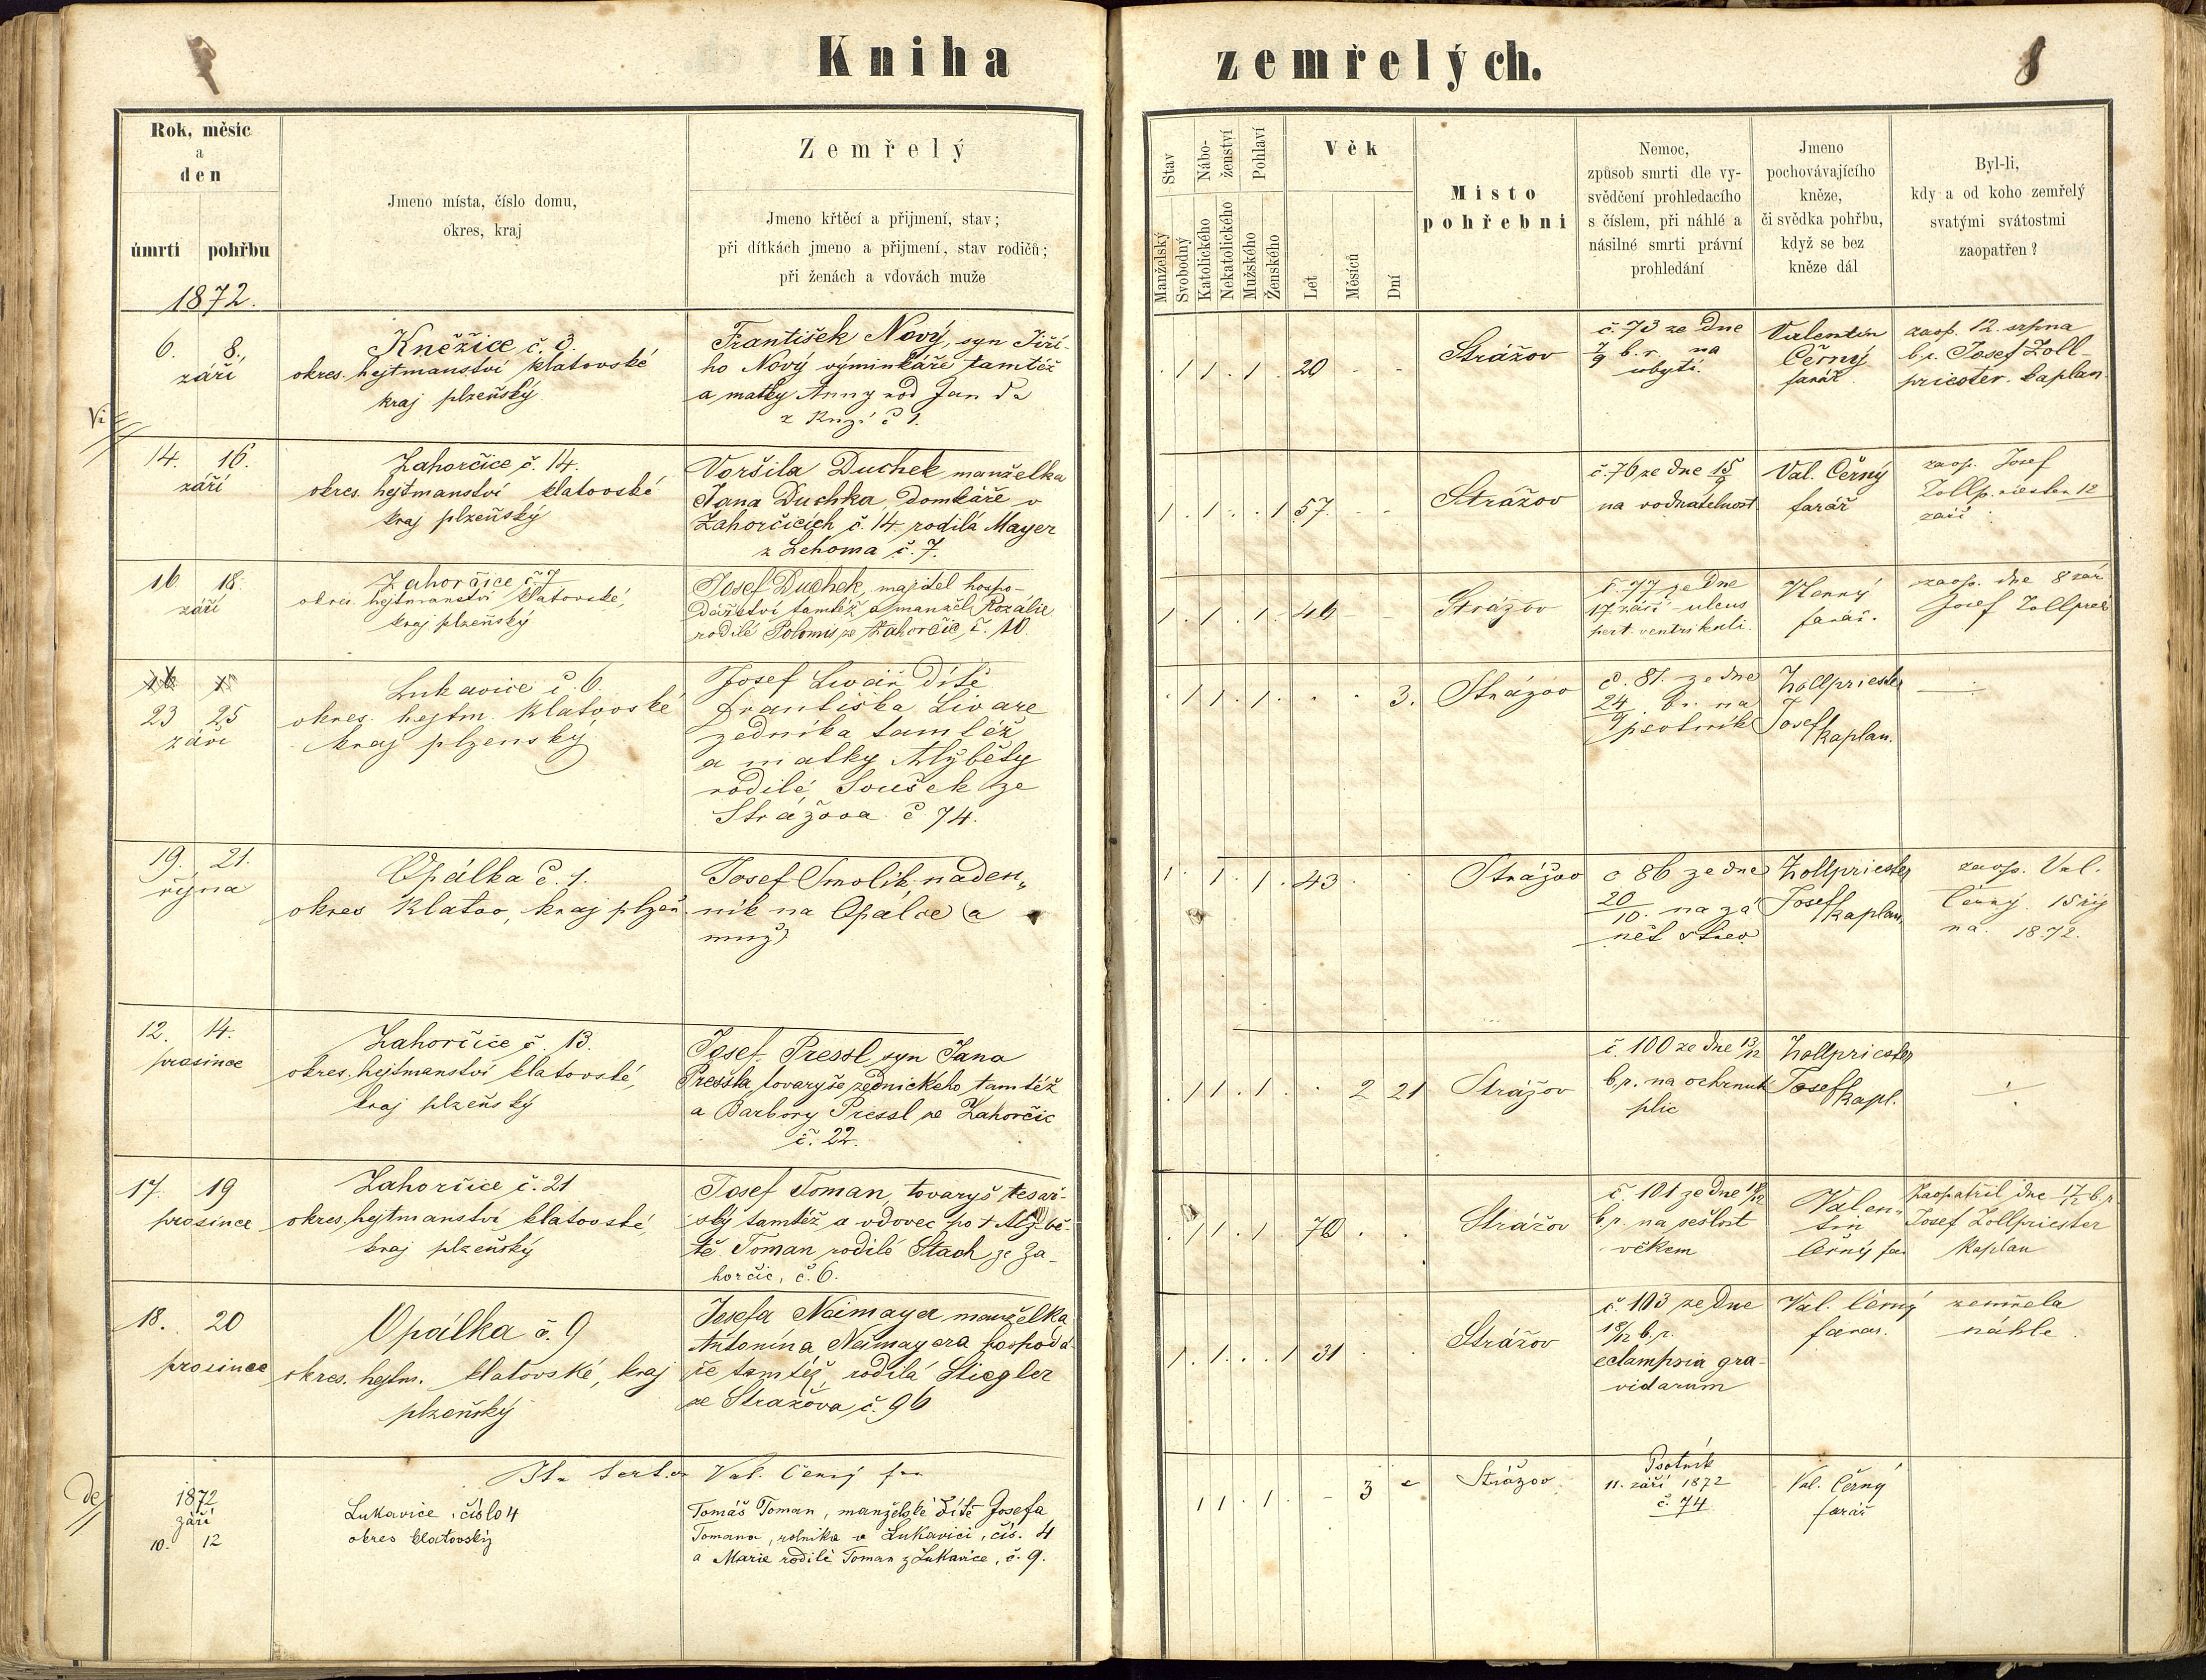 Kniha zemřelých.
8
Rok, měsíc
a
den
úmrtí pohřbu
Jmeno místa, číslo domu,
okres, kraj
Zemřelý
Jmeno křtěcí a přijmení, stav;
při dítkách jmeno a přijmení, stav rodičů;
při ženách a vdovách muže
Stav
Manželský
Svobodný
Nábo-
ženství
Katolického
Nekatolického
Pohlaví
Mužského
Ženského
Věk
Let
Měsíců
Dní
Místo
pohřební
Nemoc,
způsob smrti dle vy-
svědčení prohledacího
s číslem, při náhlé a
násilné smrti právní
prohledání
Jmeno
pochovávajícího
kněze,
či svědka pohřbu,
když se bez
kněze dál
Byl-li,
kdy a od koho zemřelý
svatými svátostmi
zaopatřen?
1872.
6. 8.
září
Kněžice č. 3.
okres. hejtmanství klatovské
kraj plzeňský
František Nový, syn Jiří-
ho Nový výminkáře tamtéž
a matky Anny rod Janda
z č 1.
1 1 1 20
Strážov
č. 73 ze dne
7/9 b. r. na
ubytí.
Valentin
Černý
farář
zaop. 12. srpna
b. r. Josef Zoll-
priester. kaplan.
14. 16.
září
Zahorčice č. 14.
okres. hejtmanství klatovské
kraj plzeňský
Voršila Duchek manželka
Jana Duchka, domkáře v
Zahorčicích č. 14. rodilá Mayer
z Lehoma č. 7.
1 1 1 57
Strážov
č. 76 ze dne 15/9
na vodnatelnost
Val. Černý
farář
zaop. Josef
Zollpriester 12
září
16 18.
září
Zahorčice č. 7
okres. hejtmanství klatovské,
kraj plzeňský
Josef Duchek, majitel hospo-
dářství tamtéž a manžel Rozálie
rodilé Polomis ze Zahorčic, č. 10.
1 1 1 46
Strážov
č. 77 ze dne
17 září ulcus
pert. ventrikuli.
farář.
zaop. dne 8 zář
Josef Zollpries
23 25
září
Lukavice č. 6.
okres. hejtm. klatovské
kraj plzenský
Josef Livař dítě
Františka Livaře
zedníka tamtéž
a matky Alžběty
rodilé Souček ze
Strážova č 74.
1 1 1 3.
Strážov
č. 81. ze dne
24/9 br. na
psotník
Zollpriester
Josef
kaplan.
19. 21.
října
Opálka č. 1.
okres Klatov, kraj plzeň.
Josef Smolik naden„
ník na Opálce (a
muž)
1 1 1 43
Strážov
č 86 ze dne
20/10. na zá
nět střev
Zollpriester
Josef
kaplan.
zaop. Val.
Černý. 15 říj
na 1872.
12. 14.
prosince
Zahorčice č. 13.
okres. hejtmanství klatovské,
kraj plzeňský
Josef Pressl syn Jana
Pressla, tovaryše zednického, tamtéž
a Barbory Pressl ze Zahorčic
č. 22.
1 1 1 2 21
Strážov
č. 100 ze dne 13/12
b.r. na ochrnutí
plic
Zollpriester
Josef kapl.
17. 19
prosince
Zahorčice č. 21
okres. hejtmanství klatovské,
kraj plzeňský
Josef Toman, tovaryš tesař-
ský tamtéž a vdovec po † Alžbě-
tě Toman rodilé Stach ze Za-
horčic, č. 6.
1 1 1 70
Strážov
č. 101 ze dne 18/12
b.r. na sešlost
věkem
Valen-
tin
Černý far
Zaopatřil dne 17/12 b.r.
Josef Zollpriester
Kaplan
18. 20
prosince
Opálka č. 9
okres. hejtm. klatovské, kraj
plzeňský
Josefa Neimayer manželka
Antonína Neimayera hospodá
ře tamtéž, rodilá Stiegler
ze Strážova č. 96
1 1 1 31
Strážov
č. 103 ze dne
18/12 b.r.
eclampsia gra-
vidarum
Val. Černý
farář.
zemřela
náhle.
Val. Černý far
1872
září
10. 12
Lukavice, číslo 4
okres klatovský
Tomáš Toman, manželské dítě Josefa
Tomana, rolníka v Lukavici, čís. 4
a Marie rodilé Toman z Lukavice, č. 9.
1 1 1 3
Strážov
Psotník
11. září 1872
č. 74
Val. Černý
farář